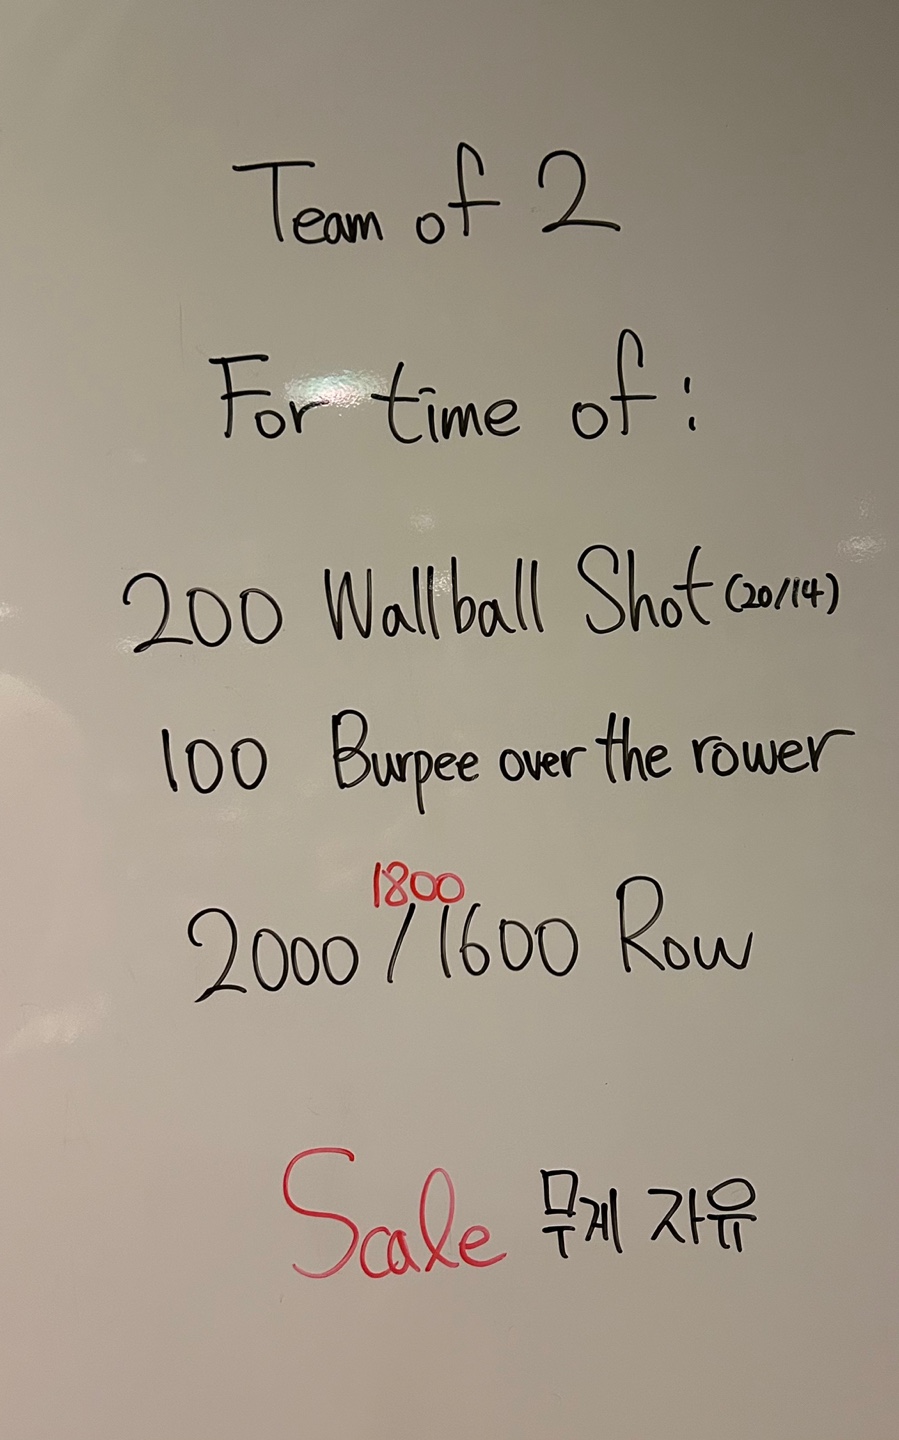 Team of 2
For time of:
200 Wallball Shot (20/14)
100 Burpee over the rower
1800
2000/1600 Row
Scale 무게 자유